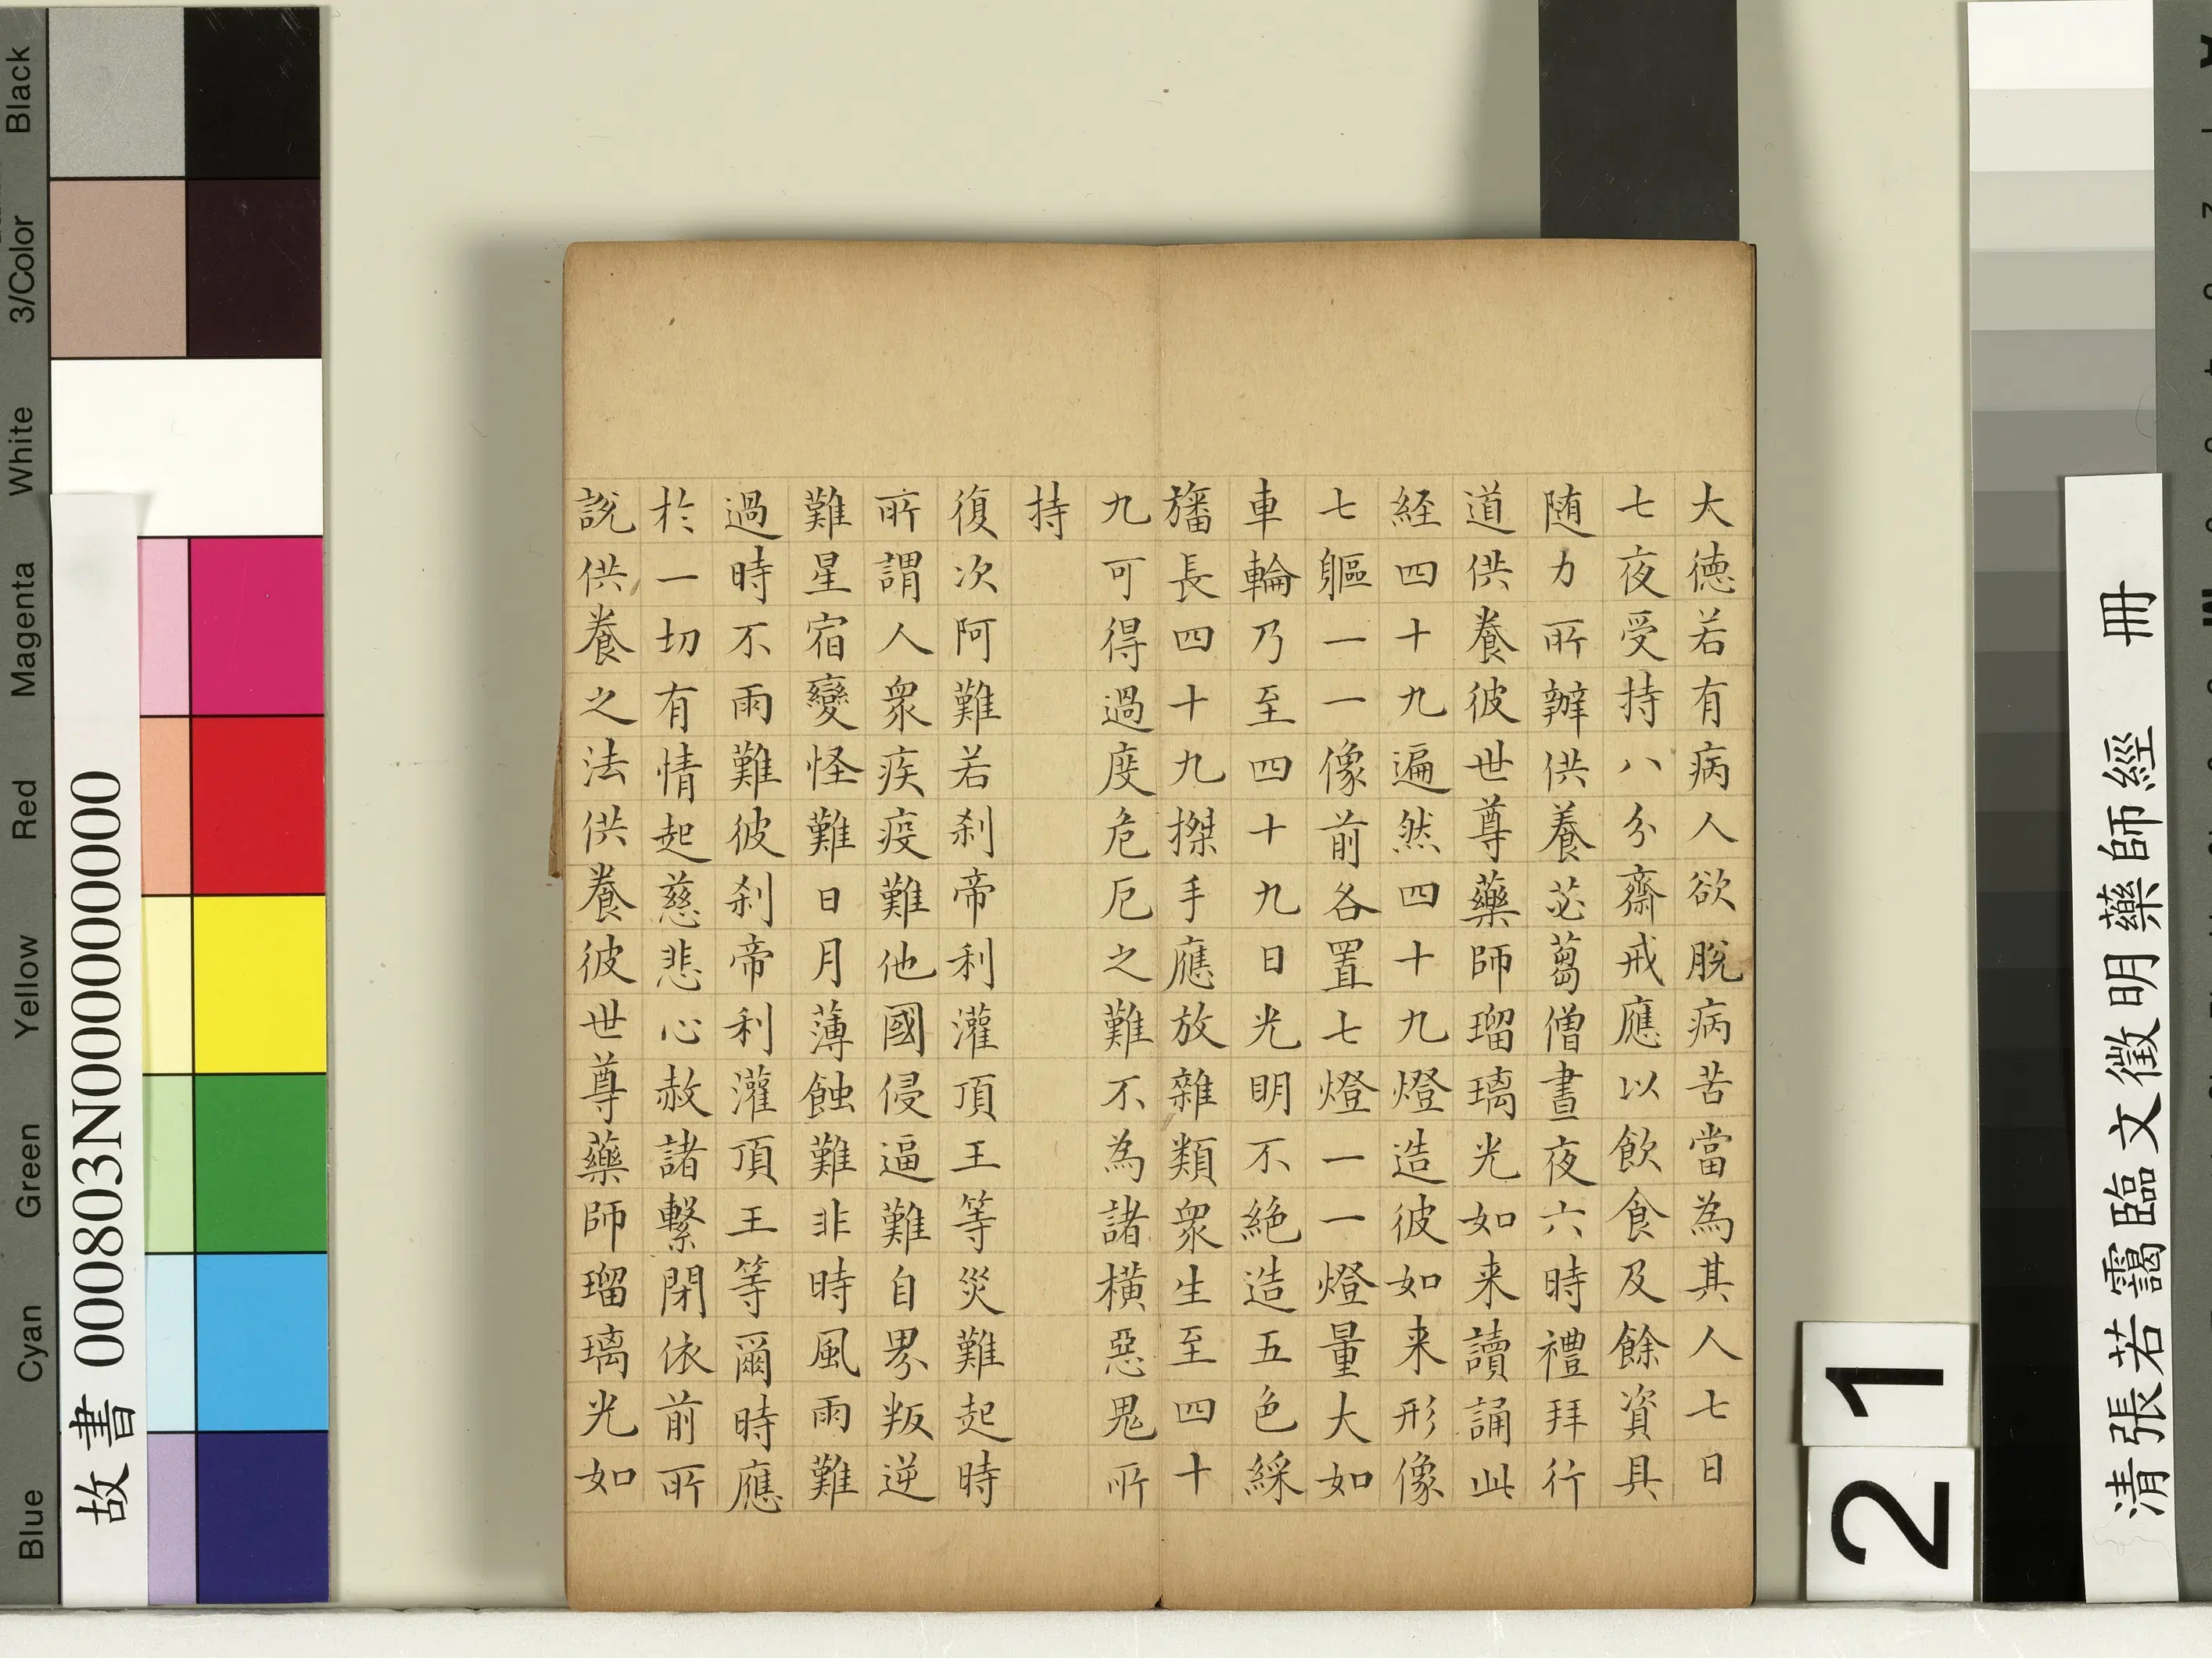 大德若有病人欲脫病苦當為其人七日
七夜受持八分齋戒應以飲食及餘資具
随力所辦供養苾蒭僧晝夜六時禮拜行
道供養彼世尊藥師瑠璃光如来讀誦此
経四十九遍然四十九燈造彼如来形像
七軀一一像前各置七燈一一燈量大如
車輪乃至四十九日光明不絕造五色綵
旛長四十九搩手應放雜類眾生至四十
九可得過度危厄之難不為諸橫惡鬼所
持
復次阿難若刹帝利灌頂王等災難起時
所謂人衆疾疫難他國侵逼難自界叛逆
難星宿變怪難日月薄蝕難非時風雨難
過時不雨難彼刹帝利灌頂王等爾時應
於一切有情起慈悲心赦諸繫閉依前所
說供養之法供養彼世尊藥師瑠璃光如
清張若靄臨文徵明藥師經 冊
故書 000803N000000000
21
Black
3/Color
White
Magenta
Red
Yellow
Green
Cyan
Blue